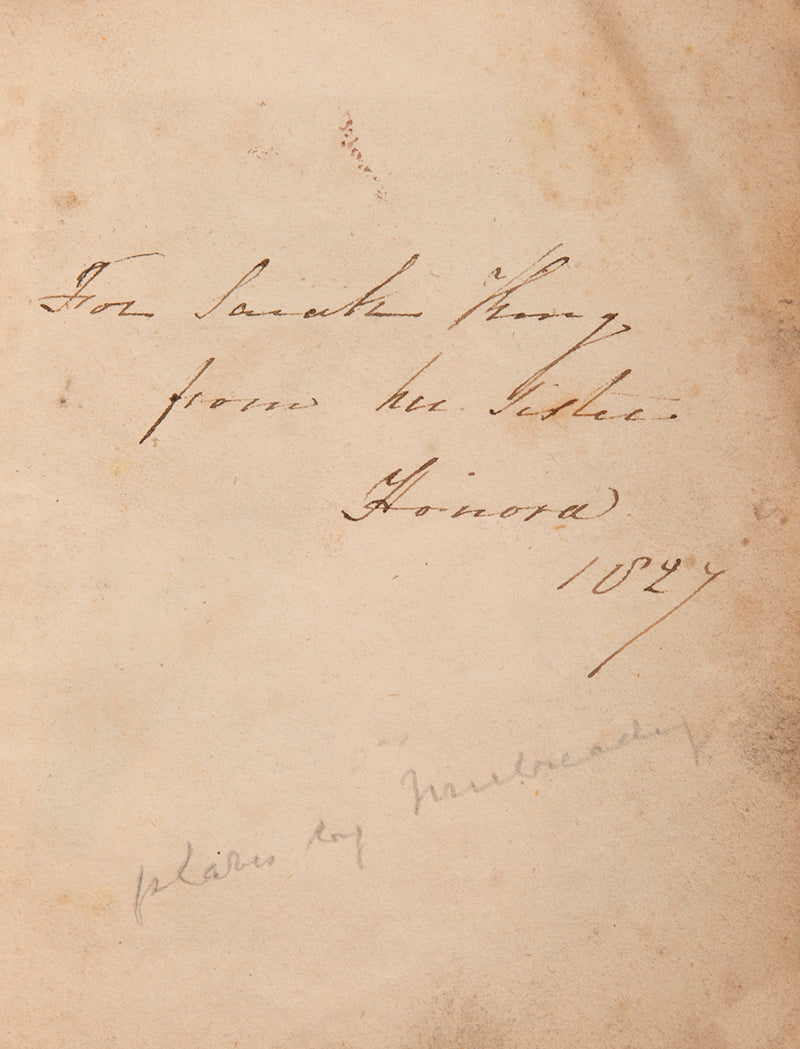 For Sarah King
from her sister
Honora
1827
plates by